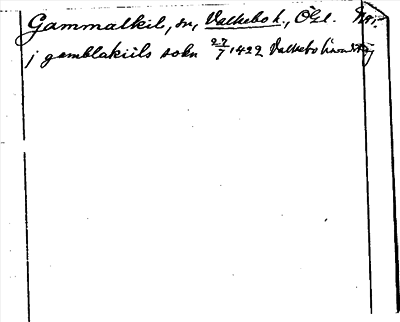 Gammalkil, sn, Valkebo h., Ögl.
j gamblakiils sokn 27/7 1422 Valkebo